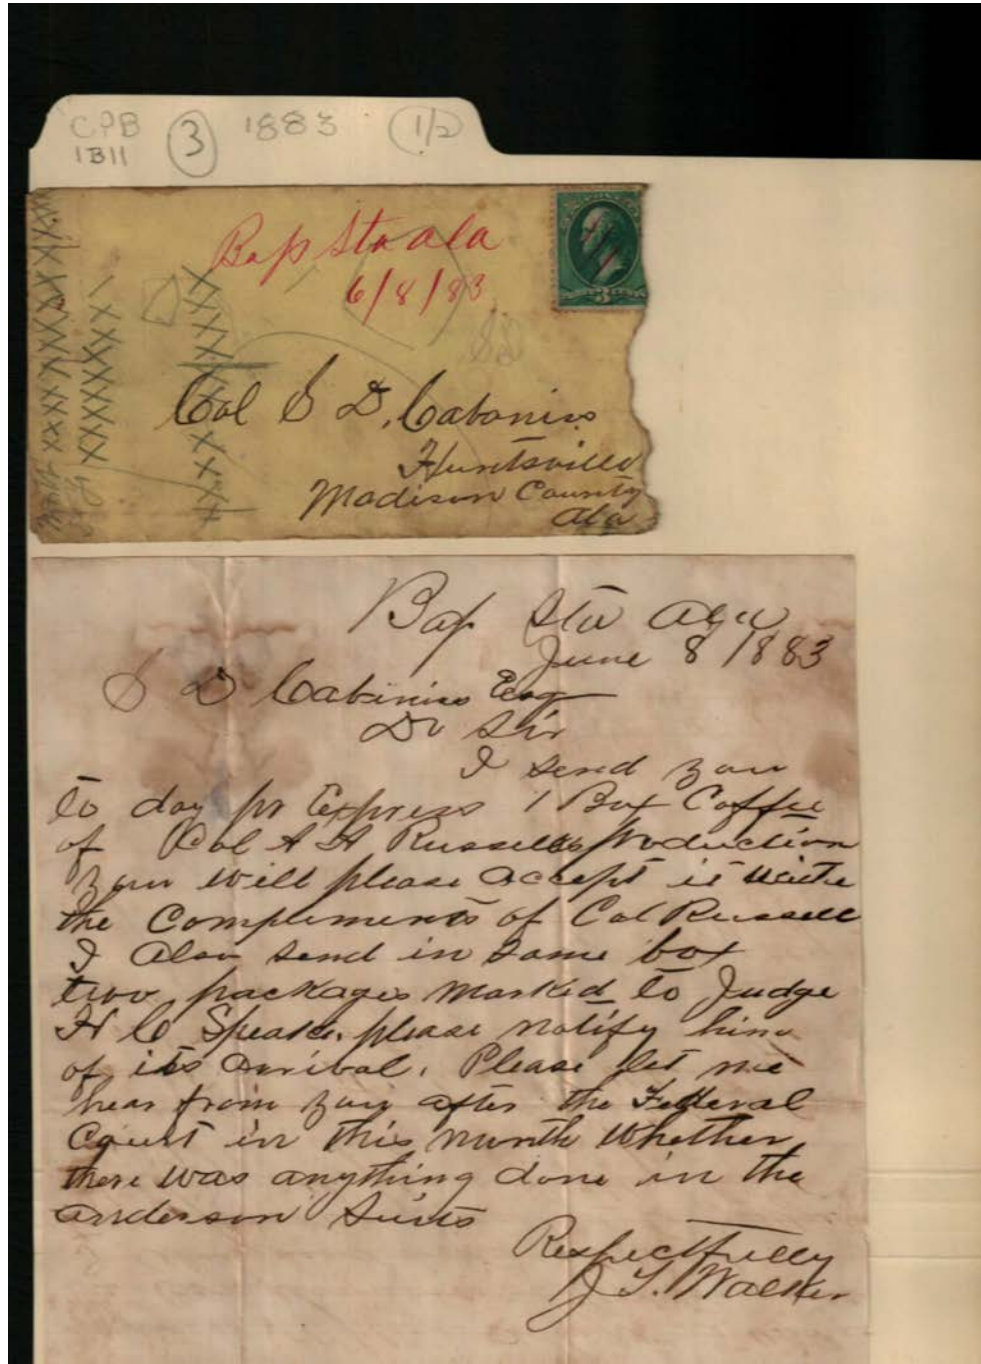 CPB
1B11
3
1883
1/2
Bap Sta ala
6/8/83
3
Col S D, Cabaniss
Huntsville
Madison County
Ala
Bap Sta Ala
June 8 1883
S D Cabiniss Esq
Dr Sir
I send you
to day pr Express 1 Box Coffee
of Col A H Russells production
you will please accept it with
the Compliments of Col Russell
I Also send in same box
two packages marked to Judge
H C Speake, please notify him
of its arrival. Please let me
hear from you after the Federal
Court in this month whether
there was anything done in the
anderson suits
Respectfully
J. T. Walker